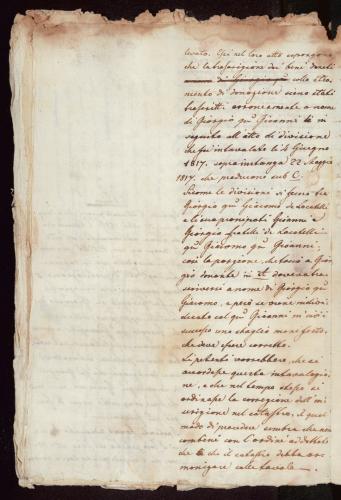 levato. Essi nel loro atto espongono
che la trascrizione dei beni donati
collo stro-
mento di donazione sieno stati
trascritti erroneamente a nome
di Giorgio qu Giovanni in
seguito all'atto di divisione
che fu intavolato li 4 Giugno
1817. sopra instanza 22 Maggio
1817. che producono sub C.
Siccome le divisioni si fecero tra
Giorgio qu Giacomo de Locatelli
e li suoi pronipoti Giovanni e
Giorgio fratelli de Locatelli
qu Giacomo qu Giovanni,
così la porzione, che toccò a Gior-
gio donante in doveva tra-
scriversi a nome di Giorgio qu
Giacomo, e però se venne indivi-
duato col qu Giovanni
successo uno sbaglio manifesto,
che deve essere corretto.
Li petenti vorrebbero, che si
accordasse questa intavolazio-
ne, e che nel tempo stesso si
ordinasse la correzione dell' in-
scrizione nel catastro, il qual
modo di procedere sembra che non
combini con l'ordine addottato
che il catastro debba ar-
monizare colle tavole. —